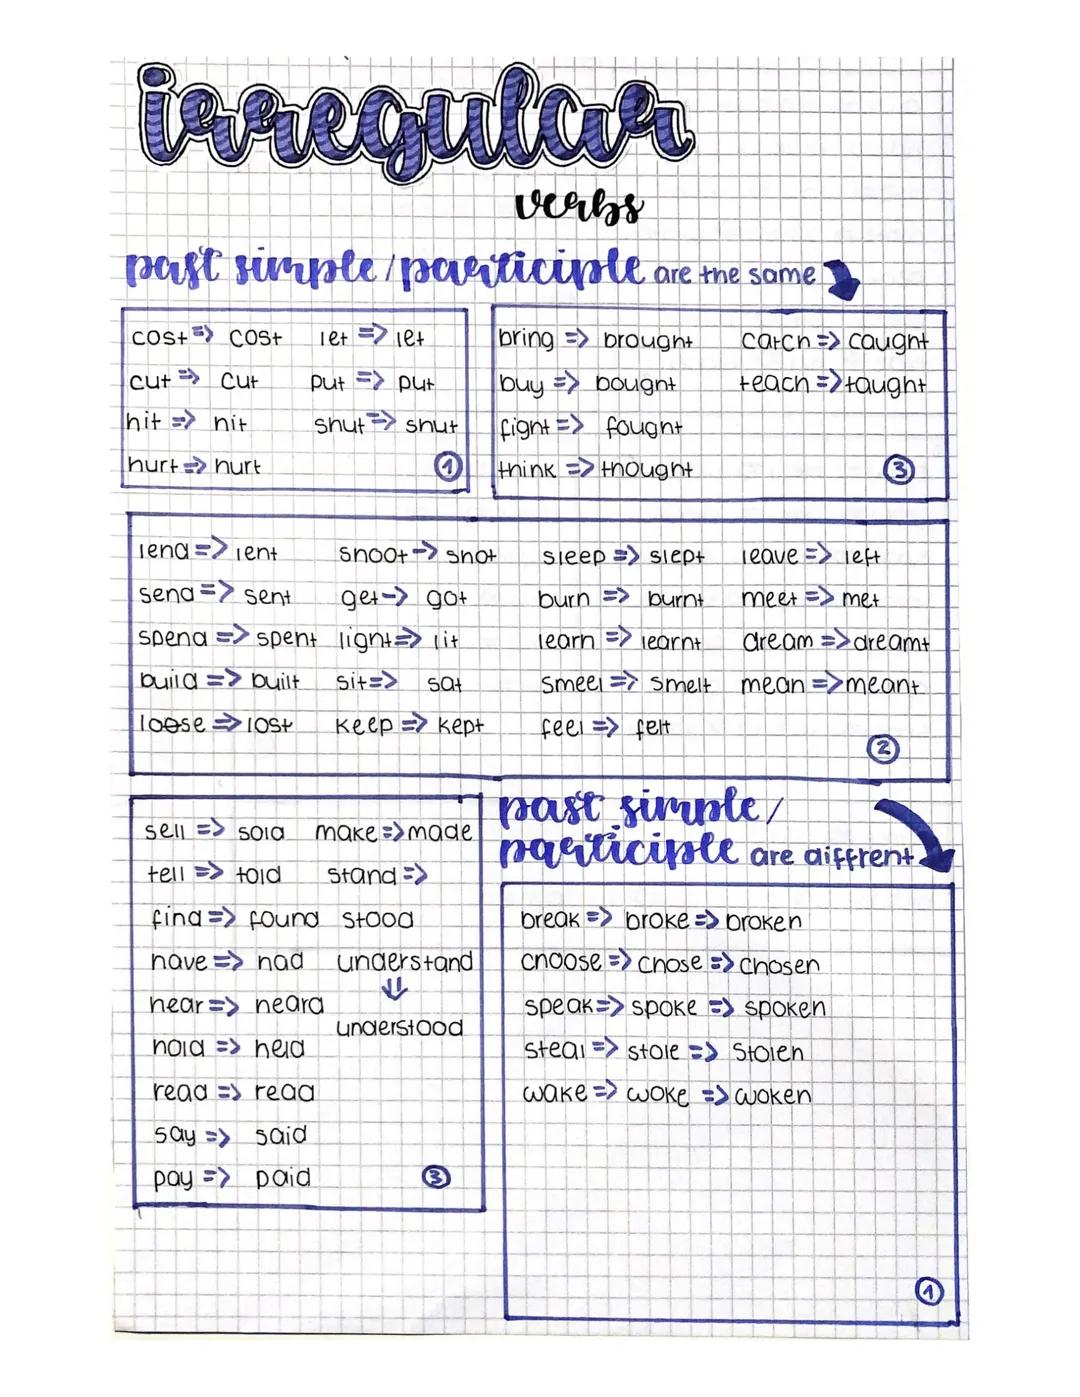 irregular
verbs
past simple/participle are the same
cost => cost let => let
cut => cut put => put
hit => hit shut => shut
hurt => hurt ①
bring => brought catch => caught
buy => bought teach => taught
fight => fought
think => thought ③
lend => lent shoot -> shot sleep => slept leave => left
send => sent get -> got burn => burnt meet => met
spend => spent light => lit learn => learnt dream => dreamt
build => built sit => sat smeel => smelt mean => meant
loose => lost keep => kept feel => felt
②
sell => sold make => made
tell => told stand =>
find => found stood
have => had understand
⇓
hear => heard
understood
hold => held
read => read
say => said
pay => paid ③
past simple/
participle are diffrent
break => broke => broken
choose => chose => chosen
speak => spoke => spoken
steal => stole => stolen
wake => woke => woken
①